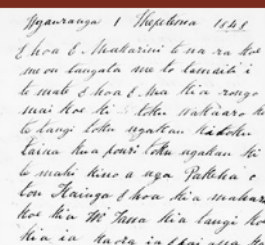 Ngauranga 1 Hepetema 1848
E hoa E Makarini te na ra koe
me ou tangata me to tamaiti i
te mate E hoa E Ma kia rongo
mai koe ki toku wakaaro ka
te tangi toku ngakau ki toku
taina kua pouri toku ngakau ki
te mahi kino a nga Pakeha o
tou Kainga E hoa kia mahara
koe kia Me Tawa kia tangi ko
kia ia